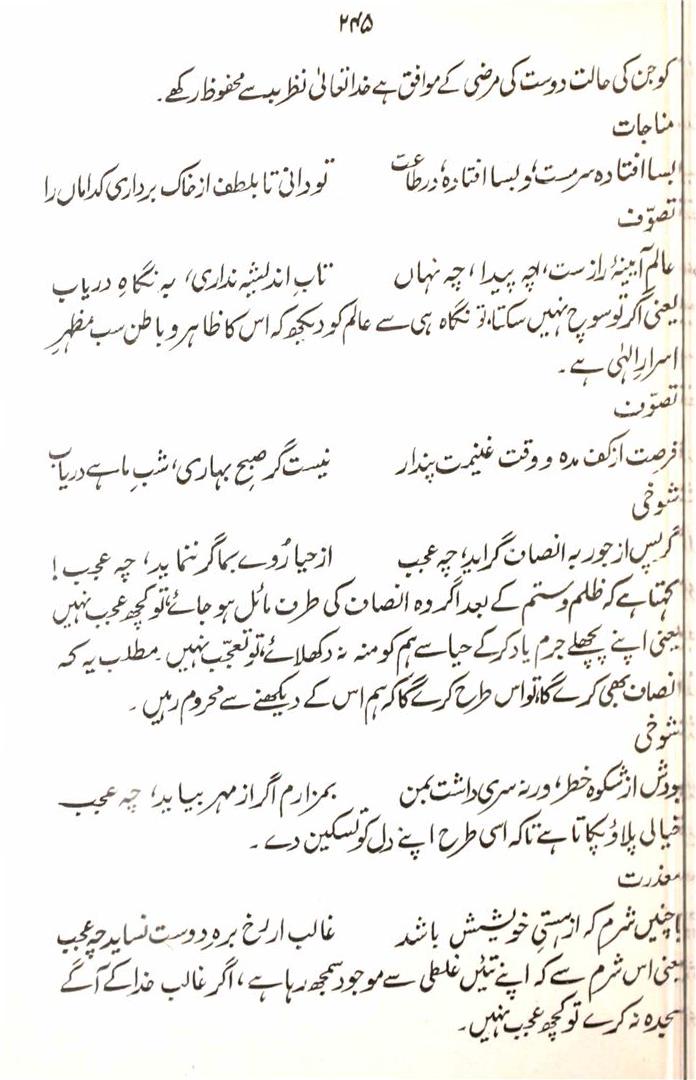 ۲۴۵
کو جن کی حالت دوست کی مرضی کے موافق ہے خدا تعالیٰ نظر بد سے محفوظ رکھے۔
مناجات
بسا افتادہ سرمست، و بسا افتادہ، در طاعت تو دانی تا بلطف از خاک برداری کداماں را
تصوّف
عالم آئینۂ راز ست، چہ پیدا، چہ نہاں تابِ اندیشہ نداری، بہ نگاہِ دریاب
یعنی اگر تو سوچ نہیں سکتا، تو نگاہ ہی سے عالم کو دیکھ کہ اس کا ظاہر و باطن سب مظہرِ
اسرارِ الٰہی ہے۔
تصوّف
فرصت از کف مدہ و وقت غنیمت پندار نیست گر صبحِ بہاری، شبِ ماہے دریاب
شوخی
گر پس از جور بہ انصاف گراید، چہ عجب از حیا رُوے بما گر ننماید، چہ عجب!
کہتا ہے کہ ظلم و ستم کے بعد اگر وہ انصاف کی طرف مائل ہو جائے، تو کچھ عجب نہیں
یعنی اپنے پچھلے جرم یاد کر کے حیا سے ہم کو منہ نہ دکھلائے، تو تعجّب نہیں۔ مطلب یہ کہ
انصاف بھی کرے گا، تو اس طرح کرے گا کہ ہم اس کے دیکھنے سے محروم رہیں۔
شوخی
بودش از شکوہ خطر، ورنہ سری داشت بمن بمزارم اگر از مہر بیاید، چہ عجب
خیالی پلاؤ پکاتا ہے تاکہ اسی طرح اپنے دل کو تسکین دے۔
معذرت
با چنیں شرم کہ از ہستیِ خویشش باشد غالب ار رخ برہِ دوست نساید چہ عجب
یعنی اس شرم سے کہ اپنے تئیں غلطی سے موجود سمجھ رہا ہے، اگر غالب خدا کے آگے
سجدہ نہ کرے تو کچھ عجب نہیں۔